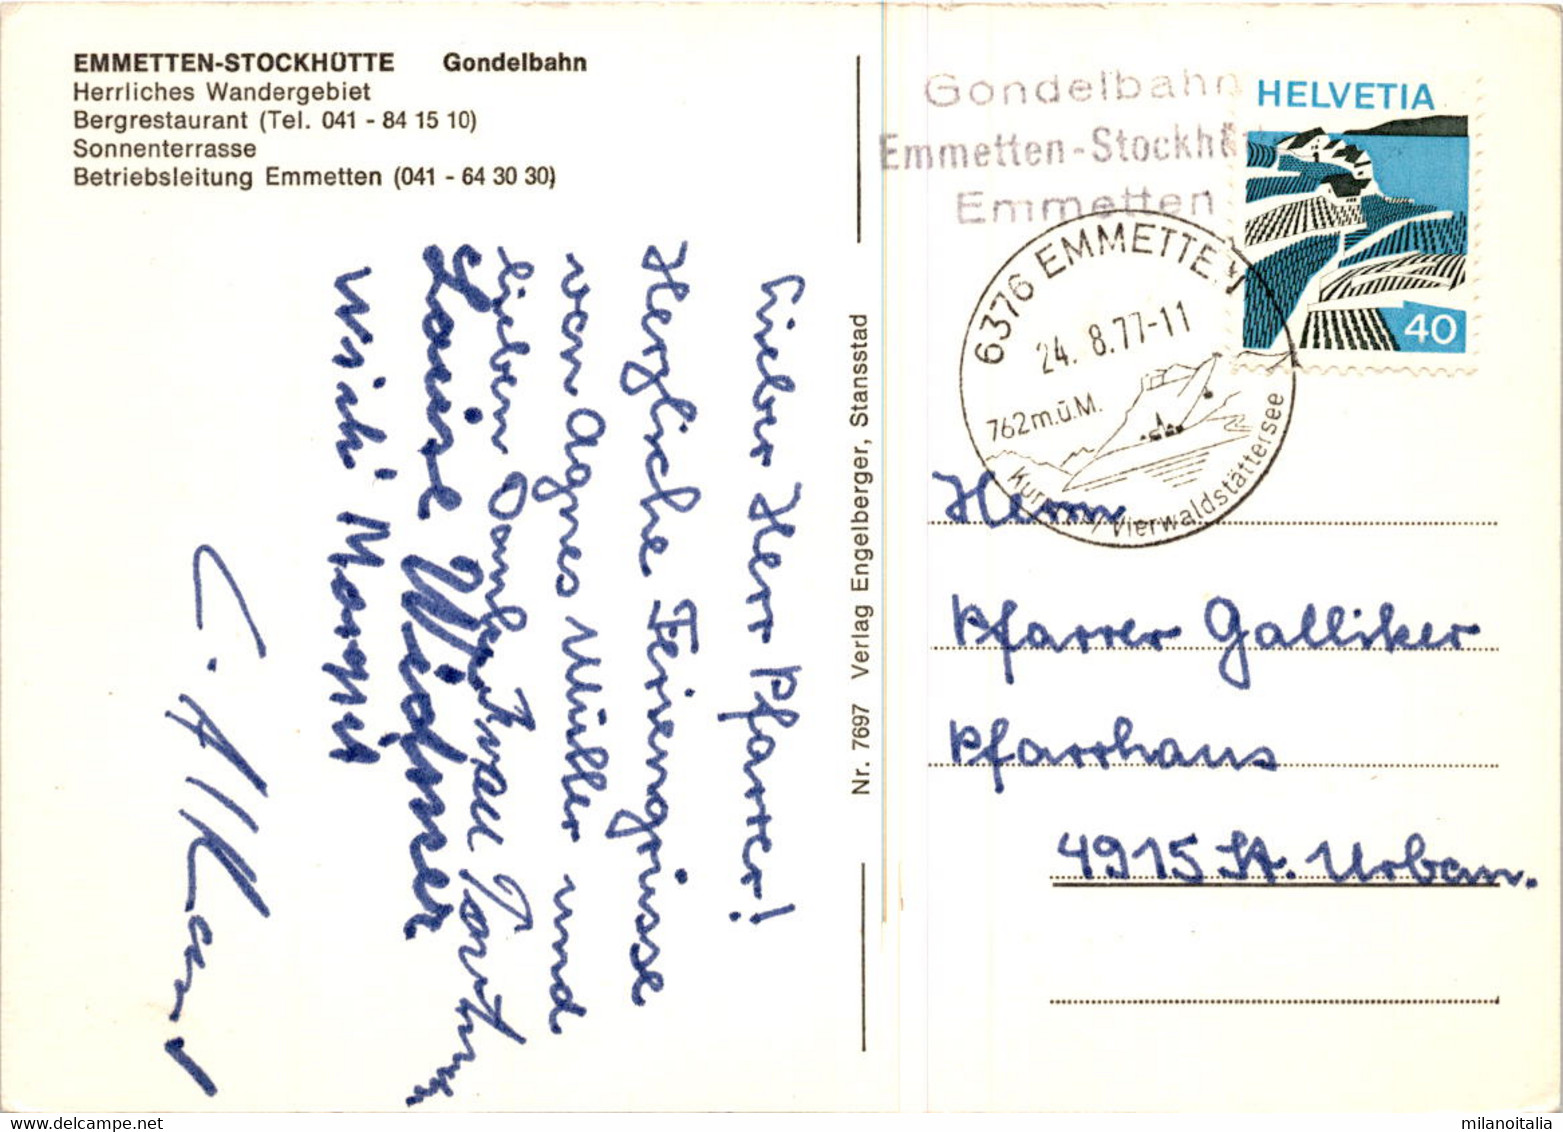 EMMETTEN-STOCKHÜTTE Gondelbahn
Herrliches Wandergebiet
Bergrestaurant (Tel. 041 - 84 15 10)
Sonnenterrasse
Betriebsleitung Emmetten (041 - 64 30 30)
Lieber Herr Pfarrer!
Herzliche Feriengrüsse
von Agnes Müller und
lieben Dank
Louise Widmer
Nr. 7697 Verlag Engelberger, Stansstad
Gondelbahn
Emmetten-Stockhüt
Emmetten
HELVETIA
40
6376 EMMETTEN
24. 8.77-11
762m.ü.M.
Kurort / Vierwaldstättersee
Herrn
Pfarrer Galliker
Pfarrhaus
4915 St. Urban.
milanoitalia